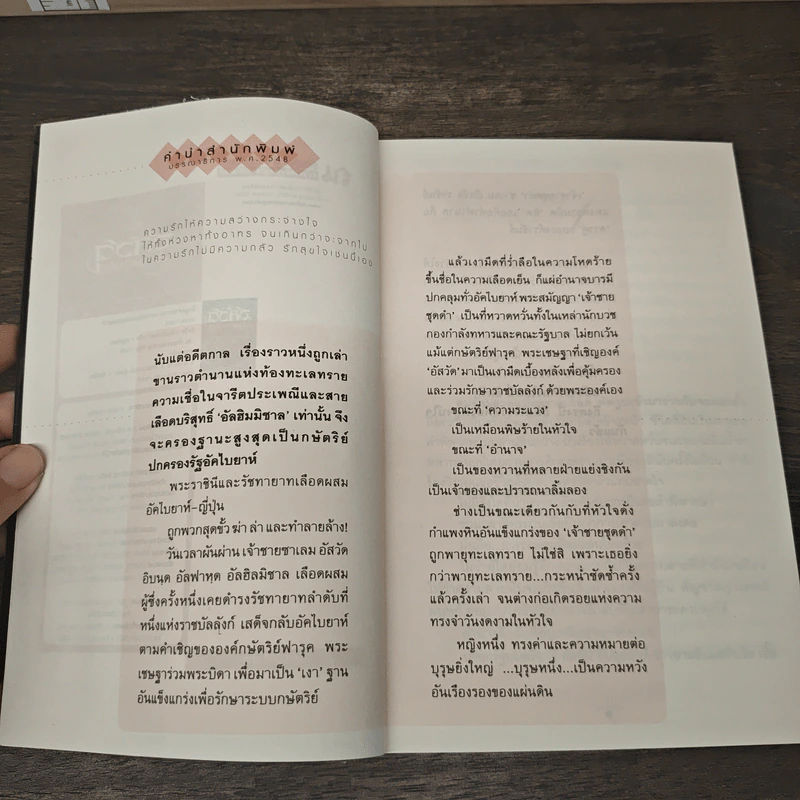 คำนำสำนักพิมพ์
บรรณาธิการ พ.ศ.2548
ความรักให้ความสว่างกระจ่างใจ
ให้ทั้งห่วงหาทั้งอาทร จนเกินกว่าจะจากไป
ในความรักไม่มีความกลัว รักสุขใจเช่นนี้เอง
นับแต่อดีตกาล เรื่องราวหนึ่งถูกเล่า
ขานราวตำนานแห่งท้องทะเลทราย
ความเชื่อในจารีตประเพณีและสาย
เลือดบริสุทธิ์ 'อัลฮิมมิซาล' เท่านั้น จึง
จะครองฐานะสูงสุดเป็นกษัตริย์
ปกครองรัฐอัคไบยาห์
พระราชินีและรัชทายาทเลือดผสม
อัคไบยาห์-ญี่ปุ่น
ถูกพวกสุดขั้ว ฆ่า ล่า และทำลายล้าง!
วันเวลาผันผ่าน เจ้าชายซาเลม อัสวัด
อิบนุด อัลฟาหุด อัลฮิลมิซาล เลือดผสม
ผู้ซึ่งครั้งหนึ่งเคยดำรงรัชทายาทลำดับที่
หนึ่งแห่งราชบัลลังก์ เสด็จกลับอัคไบยาห์
ตามคำเชิญขององค์กษัตริย์ฟารุค พระ
เชษฐาร่วมพระบิดา เพื่อมาเป็น 'เงา' ฐาน
อันแข็งแกร่งเพื่อรักษาระบบกษัตริย์
แล้วเงามืดที่ร่ำลือในความโหดร้าย
ขึ้นชื่อในความเลือดเย็น ก็แผ่อำนาจบารมี
ปกคลุมทั่วอัคไบยาห์ พระสมัญญา 'เจ้าชาย
ชุดดำ' เป็นที่หวาดหวั่นทั้งในเหล่านักบวช
กองกำลังทหารและคณะรัฐบาล ไม่ยกเว้น
แม้แต่กษัตริย์ฟารุค พระเชษฐาที่เชิญองค์
'อัสวัด' มาเป็นเงามืดเบื้องหลังเพื่อคุ้มครอง
และร่วมรักษาราชบัลลังก์ ด้วยพระองค์เอง
ขณะที่ 'ความระแวง'
เป็นเหมือนพิษร้ายในหัวใจ
ขณะที่ 'อำนาจ'
เป็นของหวานที่หลายฝ่ายแย่งชิงกัน
เป็นเจ้าของและปรารถนาลิ้มลอง
ช่างเป็นขณะเดียวกันกับที่หัวใจดั่ง
กำแพงหินอันแข็งแกร่งของ 'เจ้าชายชุดดำ'
ถูกพายุทะเลทราย ไม่ใช่สิ เพราะเธอยิ่ง
กว่าพายุทะเลทราย...กระหน่ำซัดซ้ำครั้ง
แล้วครั้งเล่า จนต่างก่อเกิดรอยแห่งความ
ทรงจำวันงดงามในหัวใจ
หญิงหนึ่ง ทรงค่าและความหมายต่อ
บุรุษยิ่งใหญ่ ...บุรุษหนึ่ง...เป็นความหวัง
อันเรืองรองของแผ่นดิน